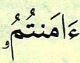 ءَامَنتُمُۥ